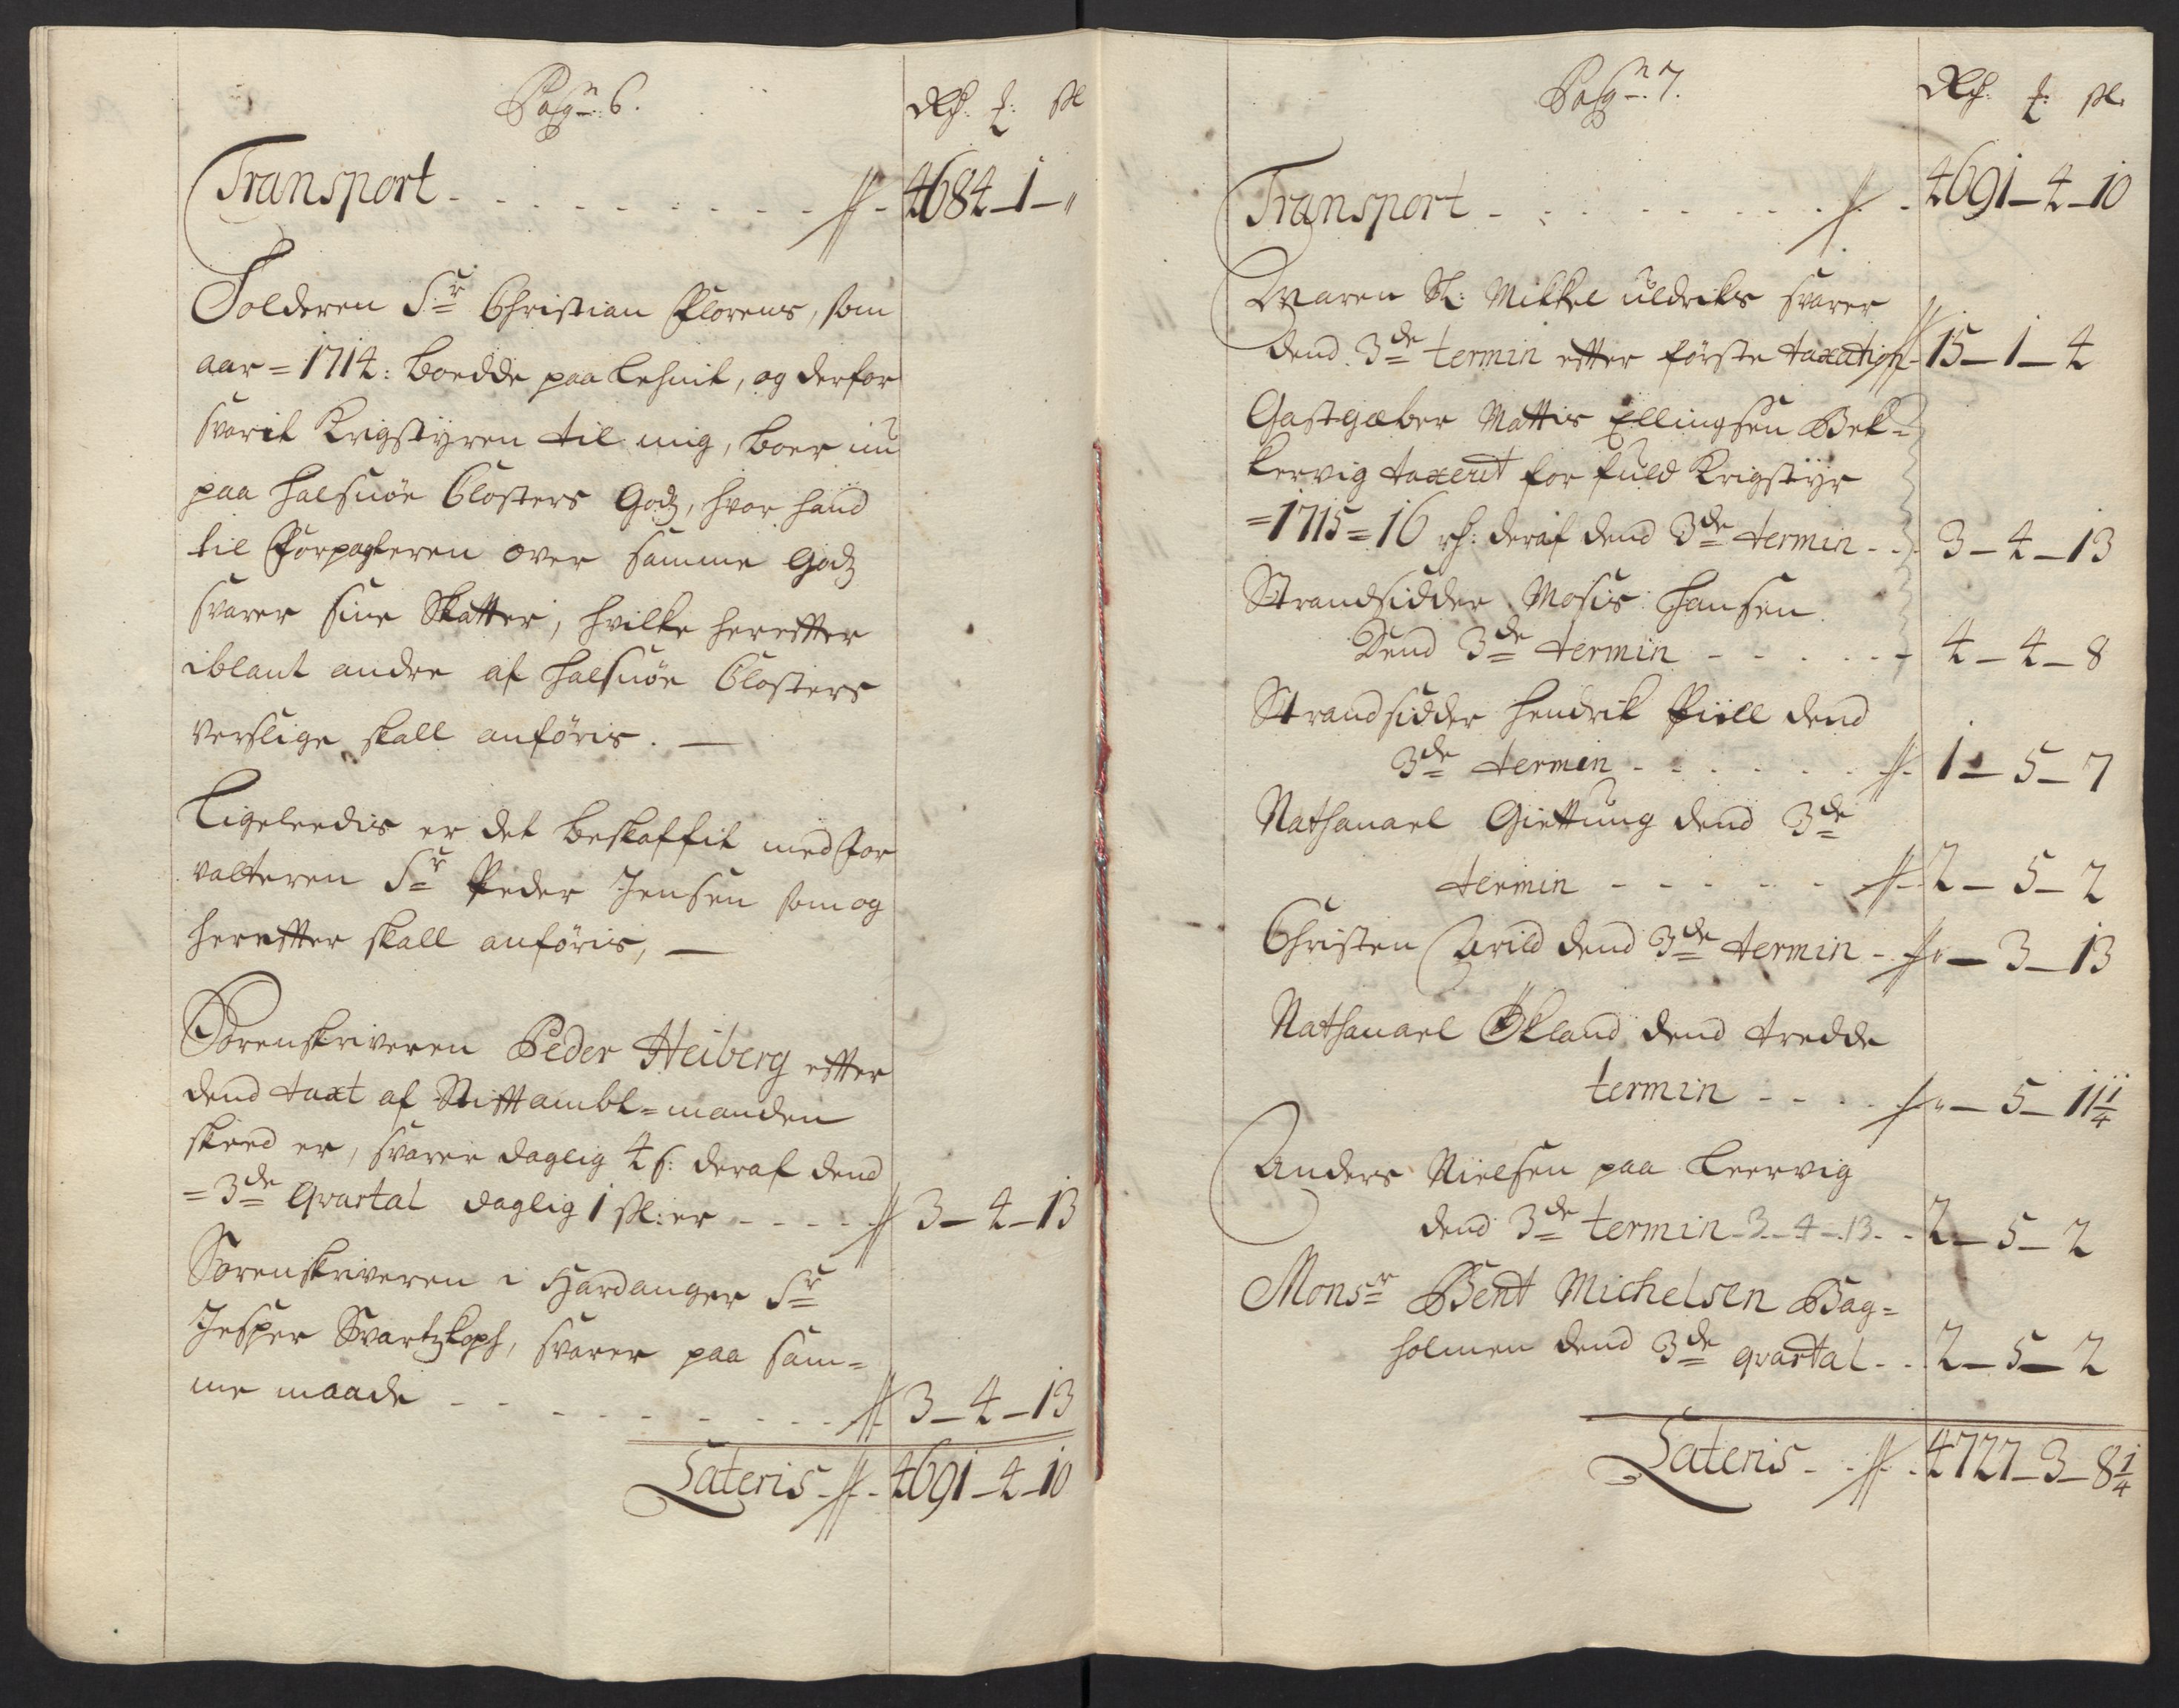 Pag: 6.
Rdr. ƺ: sk
Transport - - - - - - - - - 4684 - 1 - "
Tolderen Sr Christian Florens, som
aar = 1714: boedde paa Lehnit, og derfor
svarit Krigstyren til mig, boer nu
paa Halsnöe Closters Godz, hvor hand
til Forpagteren over samme Godz
svarer sine Skatter, hvilke herefter
iblant andre af Halsnöe Closters
verslige skall anföris. —
Ligeleedis er det beskaffit med For
valteren Sr Peder Jensen som og
herefter skall anföris, —
Sorenskriveren Peder Heiberg efter
dend taxt af Stiftambt-manden
skeed er, svarer daglig 4 s. deraf dend
= 3de Qvartal daglig 1 sk: er - - - - 3 - 4 - 13
Sorenskriveren i Hardanger Sr
Jesper Svartzkoph, svarer paa sam=
me maade - - - - - - - - - 3 - 4 - 13
Lateris - 4691 - 4 - 10
Pag: 7.
Rdr: ƺ: sk.
Transport - - - - - - - - 4691 - 4 - 10
Maren Sl: Mikkel Uldriks svarer
dend 3de termin efter förste taxation - 15 - 1 - 4
Gastgæber Mattis Ellingsen Bek=
kervig taxerit for fuld Krigstyr
= 1715 = 16 rd: deraf dend 3de termin - - 3 - 4 - 13
Strandsidder Mosis Hansen
Dend 3de termin - - - - - - 4 - 4 - 8
Strandsidder Hendrik Piill dend
3de termin - - - - - - - 1 - 5 - 7
Nathanael Giettung dend 3de
termin - - - - - - 2 - 5 - 2
Christen Arild dend 3de termin - - " - 3 - 13
Nathanael Ökland dend tredde
termin - - - - " - 5 - 11 1/4
Anders Nielsen paa Leervig
dend 3de termin - 3 - 4 - 13 - - 2 - 5 - 2
Monsr Bent Michelsen Bag=
holmen dend 3de qvartal - - 2 - 5 - 2
Lateris - - - 4727 - 3 - 8 1/4